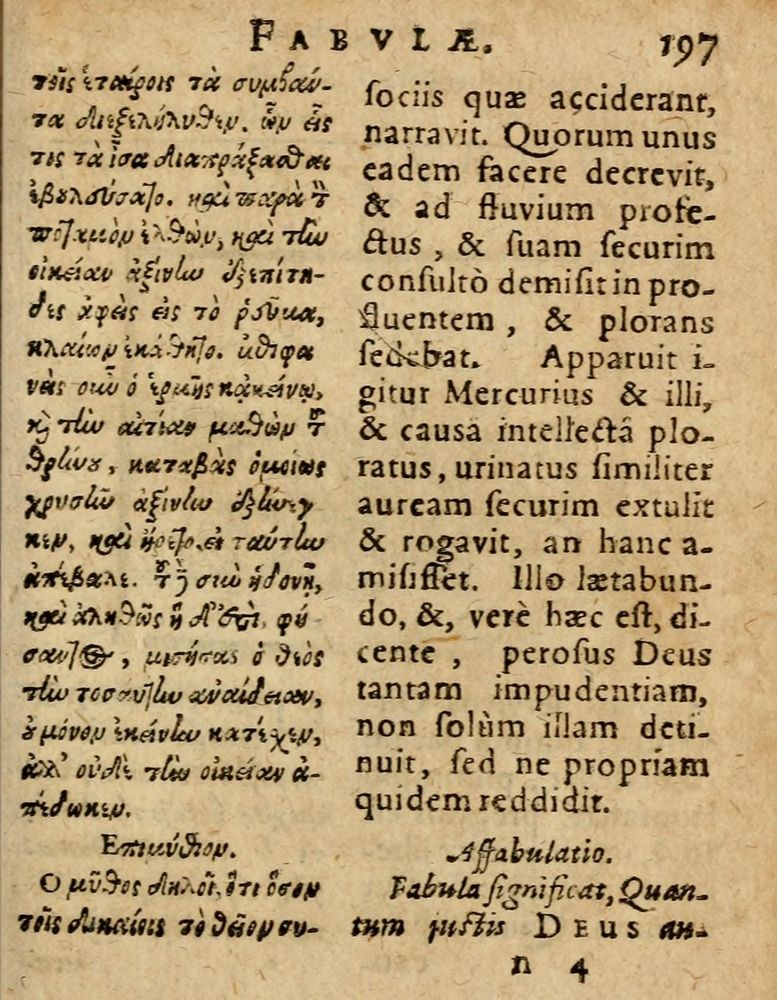 FABVLÆ. 197
τοῖς ἑταίροις τὰ συμβάν-
τα διεξελήλυθεν. ὧν εἷς
τις τὰ ἶσα διαπράξασθαι
ἐβουλεύσατο. καὶ παρὰ τὸν
ποταμὸν ἐλθὼν, καὶ τὴν
οἰκείαν ἀξίνην ἐξεπίτη-
δες ἀφεὶς εἰς τὸ ῥεῦμα,
κλαίων ἐκάθητο. ἐπιφα
νεὶς οὖν ὁ ἑρμῆς κἀκείνῳ,
καὶ τὴν αἰτίαν μαθὼν τοῦ
θρήνου, καταβὰς ὁμοίως
χρυσῆν ἀξίνην ἐξήνεγ
κεν, καὶ ἤρετο. εἰ ταύτην
ἀπέβαλε. τοῦ δὲ σὺν ἡδονῇ,
καὶ ἀληθῶς ἥδ' ἐστὶ φή
σαντος, μισήσας ὁ θεὸς
τὴν τοσαύτην ἀναίδειαν,
οὐ μόνον ἐκείνην κατέχεν,
ἀλλ' οὐδὲ τὴν οἰκείαν ἀ-
πέδωκεν.
Επιμύθιον.
Ο μῦθος δηλοῖ, ὅτι ὅσον
τοῖς δικαίοις τὸ θεῖον συ-
sociis quæ acciderant,
narravit. Quorum unus
eadem facere decrevit,
& ad fluvium profe-
ctus, & suam securim
consultò demisit in pro-
fluentem, & plorans
sedebat. Apparuit i-
gitur Mercurius & illi,
& causâ intellectâ plo-
ratus, urinatus similiter
auream securim extulit
& rogavit, an hanc a-
misisset. Illo lætabun-
do, &, verè hæc est, di-
cente, perosus Deus
tantam impudentiam,
non solùm illam deti-
nuit, sed ne propriam
quidem reddidit.
Affabulatio.
Fabula significat, Quan-
tum justis DEUS an-
n 4